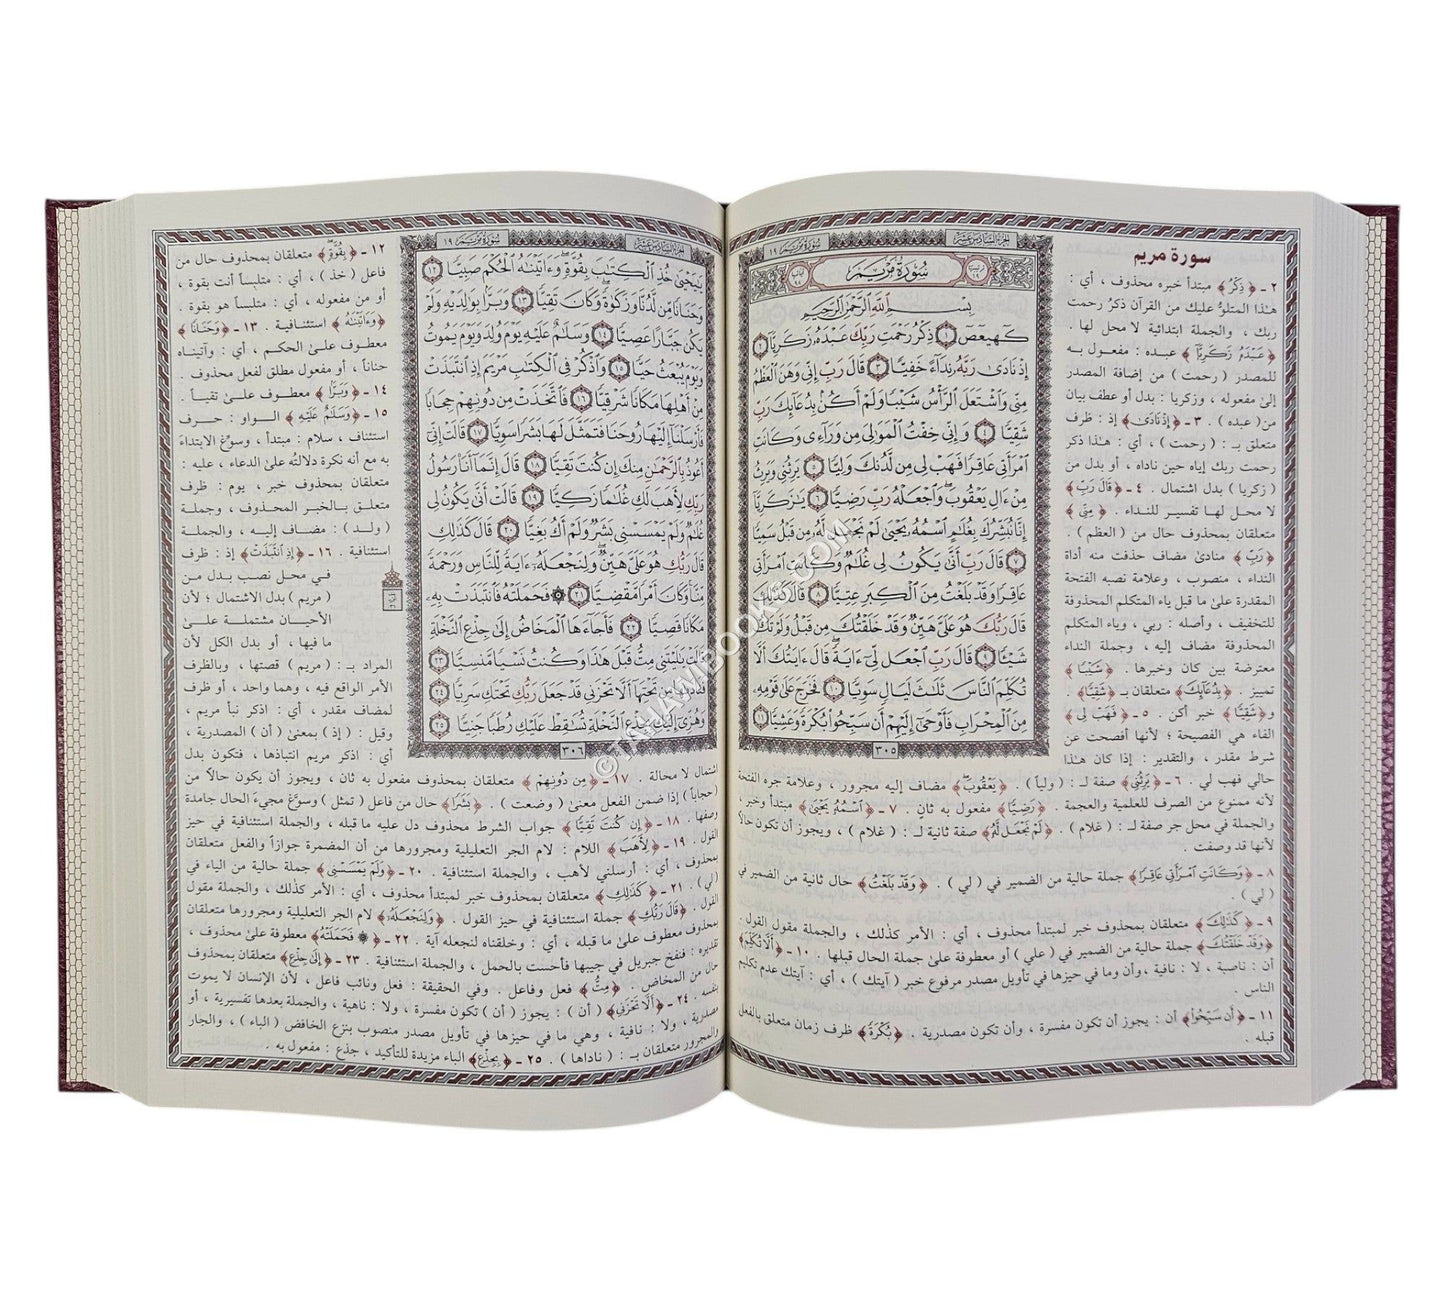 سُورَةُ مَرْيَم ١٩
الجزء السادس عشر
سُورَةُ مَرْيَم
بِسْمِ ٱللَّهِ ٱلرَّحْمَٰنِ ٱلرَّحِيمِ
كٓهيعٓصٓ ١ ذِكْرُ رَحْمَتِ رَبِّكَ عَبْدَهُۥ زَكَرِيَّآ ٢
إِذْ نَادَىٰ رَبَّهُۥ نِدَآءً خَفِيًّا ٣ قَالَ رَبِّ إِنِّى وَهَنَ ٱلْعَظْمُ
مِنِّى وَٱشْتَعَلَ ٱلرَّأْسُ شَيْبًا وَلَمْ أَكُنۢ بِدُعَآئِكَ رَبِّ
شَقِيًّا ٤ وَإِنِّى خِفْتُ ٱلْمَوَٰلِىَ مِن وَرَآءِى وَكَانَتِ
ٱمْرَأَتِى عَاقِرًا فَهَبْ لِى مِن لَّدُنكَ وَلِيًّا ٥ يَرِثُنِى وَيَرِثُ
مِنْ ءَالِ يَعْقُوبَ ۖ وَٱجْعَلْهُ رَبِّ رَضِيًّا ٦ يَٰزَكَرِيَّآ
إِنَّا نُبَشِّرُكَ بِغُلَٰمٍ ٱسْمُهُۥ يَحْيَىٰ لَمْ نَجْعَل لَّهُۥ مِن قَبْلُ سَمِيًّا
٧ قَالَ رَبِّ أَنَّىٰ يَكُونُ لِى غُلَٰمٌ وَكَانَتِ ٱمْرَأَتِى
عَاقِرًا وَقَدْ بَلَغْتُ مِنَ ٱلْكِبَرِ عِتِيًّا ٨ قَالَ كَذَٰلِكَ
قَالَ رَبُّكَ هُوَ عَلَىَّ هَيِّنٌ وَقَدْ خَلَقْتُكَ مِن قَبْلُ وَلَمْ تَكُ
شَيْـًٔا ٩ قَالَ رَبِّ ٱجْعَل لِّىٓ ءَايَةً ۚ قَالَ ءَايَتُكَ أَلَّا
تُكَلِّمَ ٱلنَّاسَ ثَلَٰثَ لَيَالٍ سَوِيًّا ١٠ فَخَرَجَ عَلَىٰ قَوْمِهِۦ
مِنَ ٱلْمِحْرَابِ فَأَوْحَىٰٓ إِلَيْهِمْ أَن سَبِّحُوا۟ بُكْرَةً وَعَشِيًّا ١١
٣٠٥
سورة مريم
٢ ـ ﴿ ذِكْرُ ﴾ مبتدأ خبره محذوف ، أي :
هذا المتلوُّ عليك من القرآن ذكرُ رحمت
ربك . والجملة ابتدائية لا محل لها .
﴿ عَبْدَهُۥ زَكَرِيَّآ ﴾ عبده : مفعول به
للمصدر ( رحمت ) من إضافة المصدر
إلىٰ مفعوله ، وزكريا : بدل أو عطف بيان
من( عبده ) . ٣ ـ ﴿ إِذْ نَادَىٰ ﴾ إذ : ظرف
متعلق بـ : ( رحمت ) ، أي : هذا ذكر
رحمت ربك إياه حين ناداه ، أو بدل من
( زكريا ) بدل اشتمال . ٤ ـ ﴿ قَالَ رَبِّ ﴾
لا محل لها تفسير للنداء . ﴿ مِنِّى ﴾
متعلقان بمحذوف حال من ( العظم ) .
﴿ رَبِّ ﴾ منادىٰ مضاف حذفت منه أداة
النداء ، منصوب ، وعلامة نصبه الفتحة
المقدرة علىٰ ما قبل ياء المتكلم المحذوفة
للتخفيف ، وأصله : ربي ، وياء المتكلم
المحذوفة مضاف إليه ، وجملة النداء
معترضة بين كان وخبرها . ﴿ شَيْبًا ﴾
تمييز . ﴿ بِدُعَآئِكَ ﴾ متعلقان بـ ﴿ شَقِيًّا ﴾ .
و﴿ شَقِيًّا ﴾ خبر أكن . ٥ ـ ﴿ فَهَبْ لِى ﴾
الفاء هي الفصيحة ؛ لأنها أفصحت عن
شرط مقدر ، والتقدير : إذا كان هذا
حالي فهب لي . ٦ ـ ﴿ يَرِثُنِى ﴾ صفة لـ : ( ولياً ) . ﴿ يَعْقُوبَ ۖ ﴾ مضاف إليه مجرور ، وعلامة جره الفتحة
لأنه ممنوع من الصرف للعلمية والعجمة . ﴿ رَضِيًّا ﴾ مفعول به ثانٍ . ٧ ـ ﴿ ٱسْمُهُۥ يَحْيَىٰ ﴾ مبتدأ وخبر ،
والجملة في محل جر صفة لـ : ( غلام ) . ﴿ لَمْ نَجْعَل لَّهُۥ ﴾ صفة ثانية لـ : ( غلام ) ، ويجوز أن تكون حالاً
لأنها قد وصفت .
٨ ـ ﴿ وَكَانَتِ ٱمْرَأَتِى عَاقِرًا ﴾ جملة حالية من الضمير في ( لي ) . ﴿ وَقَدْ بَلَغْتُ ﴾ حال ثانية من الضمير في
( لي ) .
٩ ـ ﴿ كَذَٰلِكَ ﴾ متعلقان بمحذوف خبر لمبتدأ محذوف ، أي : الأمر كذلك ، والجملة مقول القول .
﴿ وَقَدْ خَلَقْتُكَ ﴾ جملة حالية من الضمير في ( علي ) أو معطوفة علىٰ جملة الحال قبلها . ١٠ ـ ﴿ أَلَّا تُكَلِّمَ ﴾
أن : ناصبة ، لا : نافية ،وأن وما في حيزها في تأويل مصدر مرفوع خبر ( آيتك ) ، أي : آيتك عدم تكليم
الناس .
١١ ـ ﴿ أَن سَبِّحُوا۟ ﴾ أن : يجوز أن تكون مفسرة ، وأن تكون مصدرية . ﴿ بُكْرَةً ﴾ ظرف زمان متعلق بالفعل
قبله .
سُورَةُ مَرْيَم ١٩
الجزء السادس عشر
يَٰيَحْيَىٰ خُذِ ٱلْكِتَٰبَ بِقُوَّةٍ ۖ وَءَاتَيْنَٰهُ ٱلْحُكْمَ صَبِيًّا ١٢
وَحَنَانًا مِّن لَّدُنَّا وَزَكَوٰةً ۖ وَكَانَ تَقِيًّا ١٣ وَبَرًّۢا بِوَٰلِدَيْهِ وَلَمْ
يَكُن جَبَّارًا عَصِيًّا ١٤ وَسَلَٰمٌ عَلَيْهِ يَوْمَ وُلِدَ وَيَوْمَ يَمُوتُ
وَيَوْمَ يُبْعَثُ حَيًّا ١٥ وَٱذْكُرْ فِى ٱلْكِتَٰبِ مَرْيَمَ إِذِ ٱنتَبَذَتْ
مِنْ أَهْلِهَا مَكَانًا شَرْقِيًّا ١٦ فَٱتَّخَذَتْ مِن دُونِهِمْ حِجَابًا
فَأَرْسَلْنَآ إِلَيْهَا رُوحَنَا فَتَمَثَّلَ لَهَا بَشَرًا سَوِيًّا ١٧ قَالَتْ إِنِّىٓ
أَعُوذُ بِٱلرَّحْمَٰنِ مِنكَ إِن كُنتَ تَقِيًّا ١٨ قَالَ إِنَّمَآ أَنَا۠ رَسُولُ
رَبِّكِ لِأَهَبَ لَكِ غُلَٰمًا زَكِيًّا ١٩ قَالَتْ أَنَّىٰ يَكُونُ لِى
غُلَٰمٌ وَلَمْ يَمْسَسْنِى بَشَرٌ وَلَمْ أَكُ بَغِيًّا ٢٠ قَالَ كَذَٰلِكِ
قَالَ رَبُّكِ هُوَ عَلَىَّ هَيِّنٌ ۖ وَلِنَجْعَلَهُۥٓ ءَايَةً لِّلنَّاسِ وَرَحْمَةً
مِّنَّا ۚ وَكَانَ أَمْرًا مَّقْضِيًّا ٢١ ۞ فَحَمَلَتْهُ فَٱنتَبَذَتْ بِهِۦ
مَكَانًا قَصِيًّا ٢٢ فَأَجَآءَهَا ٱلْمَخَاضُ إِلَىٰ جِذْعِ ٱلنَّخْلَةِ
قَالَتْ يَٰلَيْتَنِى مِتُّ قَبْلَ هَٰذَا وَكُنتُ نَسْيًا مَّنسِيًّا ٢٣
فَنَادَىٰهَا مِن تَحْتِهَآ أَلَّا تَحْزَنِى قَدْ جَعَلَ رَبُّكِ تَحْتَكِ سَرِيًّا ٢٤
وَهُزِّىٓ إِلَيْكِ بِجِذْعِ ٱلنَّخْلَةِ تُسَٰقِطْ عَلَيْكِ رُطَبًا جَنِيًّا ٢٥
٣٠٦
١٢ ـ ﴿ بِقُوَّةٍ ۖ ﴾ متعلقان بمحذوف حال من
فاعل ( خذ ) ، أي : متلبساً أنت بقوة ،
أو من مفعوله ، أي : متلبساً هو بقوة .
﴿ وَءَاتَيْنَٰهُ ﴾ استئنافية . ١٣ ـ ﴿ وَحَنَانًا ﴾
معطوف علىٰ الحكم ، أي : وآتيناه
حناناً ، أو مفعول مطلق لفعل محذوف .
١٤ ـ ﴿ وَبَرًّۢا ﴾ معطوف علىٰ تقياً .
١٥ ـ ﴿ وَسَلَٰمٌ عَلَيْهِ ﴾ الواو : حرف
استئناف ، سلام : مبتدأ ، وسوَّغ الابتداءَ
به مع أنه نكرة دلالتُه علىٰ الدعاء ، عليه :
متعلقان بمحذوف خبر ، يوم : ظرف
متعلق بالخبر المحذوف ، وجملة
( ولد ) : مضاف إليه ، والجملة
استئنافية . ١٦ ـ ﴿ إِذِ ٱنتَبَذَتْ ﴾ إذ : ظرف
في محل نصب بدل من
( مريم ) بدل الاشتمال ؛ لأن
الأحيان مشتملة علىٰ
ما فيها ، أو بدل الكل لأن
المراد بـ : ( مريم ) قصتها ، وبالظرف
الأمر الواقع فيه ، وهما واحد ، أو ظرف
لمضاف مقدر ، أي : اذكر نبأ مريم ،
وقيل : ( إذ ) بمعنىٰ ( أن ) المصدرية ،
أي : اذكر مريم انتباذها ، فتكون بدل
اشتمال لا محالة . ١٧ ـ ﴿ مِن دُونِهِمْ ﴾ متعلقان بمحذوف مفعول به ثان ، ويجوز أن يكون حالاً من
( حجاباً ) إذا ضمن الفعل معنىٰ ( وضعت ) . ﴿ بَشَرًا ﴾ حال من فاعل ( تمثل ) وسوَّغ مجيءَ الحال جامدة
وصفها . ١٨ ـ ﴿ إِن كُنتَ تَقِيًّا ﴾ جواب الشرط محذوف دل عليه ما قبله ، والجملة استئنافية في حيز
القول . ١٩ ـ ﴿ لِأَهَبَ ﴾ اللام : لام الجر التعليلية ومجرورها من أن المضمرة جوازاً والفعل متعلقان
بمحذوف ، أي : أرسلني لأهب ، والجملة استئنافية . ٢٠ ـ ﴿ وَلَمْ يَمْسَسْنِى ﴾ جملة حالية من الياء في
( لي ) . ٢١ ـ ﴿ كَذَٰلِكِ ﴾ متعلقان بمحذوف خبر لمبتدأ محذوف ، أي : الأمر كذلك ، والجملة مقول
القول . ﴿ قَالَ رَبُّكِ ﴾ جملة استئنافية في حيز القول . ﴿ وَلِنَجْعَلَهُۥٓ ﴾ لام الجر التعليلية ومجرورها متعلقان
بمحذوف معطوف علىٰ ما قبله ، أي : وخلقناه لنجعله آية . ٢٢ ـ ﴿ ۞ فَحَمَلَتْهُ ﴾ معطوفة علىٰ محذوف ،
تقديره : فنفخ جبريل في جيبها فأحست بالحمل ، والجملة استئنافية . ٢٣ ـ ﴿ إِلَىٰ جِذْعِ ﴾ متعلقان بمحذوف
حال من المخاض . ﴿ مِتُّ ﴾ فعل وفاعل . وفي الحقيقة : فعل ونائب فاعل ، لأن الإنسان لا يموت
بنفسه . ٢٤ ـ ﴿ أَلَّا تَحْزَنِى ﴾ ( أن ) : يجوز ( أن ) تكون مفسرة ، ولا : ناهية ، والجملة بعدها تفسيرية ، أو
مصدرية ، ولا : نافية ، وهي ما في حيزها في تأويل مصدر منصوب بنزع الخافض ( الباء ) ، والجار
والمجرور متعلقان بـ : ( ناداها ) . ٢٥ ـ ﴿ بِجِذْعِ ﴾ الباء مزيدة للتأكيد ، جذع : مفعول به .
©TAMAMBOOKS.COM